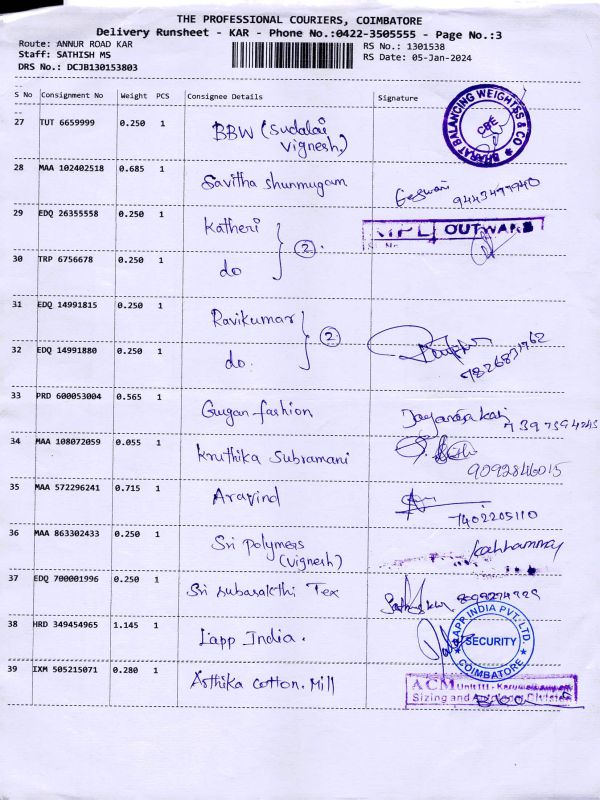 THE PROFESSIONAL COURIERS, COIMBATORE
Delivery Runsheet - KAR - Phone No.:0422-3505555 - Page No.:3
Route: ANNUR ROAD KAR
RS No.: 1301538
Staff: SATHISH MS
RS Date: 05-Jan-2024
DRS No.: DCJB130153803
S No Consignment No Weight PCS Consignee Details Signature
27 TUT 6659999 0.250 1 BBW (Sudalai
Vignesh)
BHARAT BALANCING WEIGHTSS & CO
CBE
28 MAA 102402518 0.685 1 Savitha Shunmugam
29 EDQ 26355558 0.250 1 Katheri
2
OUTWARD
30 TRP 6756678 0.250 1 do
31 EDQ 14991815 0.250 1 Ravikumar
2
32 EDQ 14991880 0.250 1 do.
33 PRD 600053004 0.565 1 Gugan fashion
34 MAA 108072059 0.055 1 Kruthika Subramani
9092846015
35 MAA 572296241 0.715 1 Aravind
7402205110
36 MAA 863302433 0.250 1 Sri Polymers
(Vignesh)
37 EDQ 700001996 0.250 1 Sri Subasakthi Tex
38 HRD 349454965 1.145 1 Lapp India.
LAPP INDIA PVT. LTD.
SECURITY
COIMBATORE
39 IXM 505215071 0.280 1 Asthika Cotton. Mill
ACM Unit III -
Sizing and Division